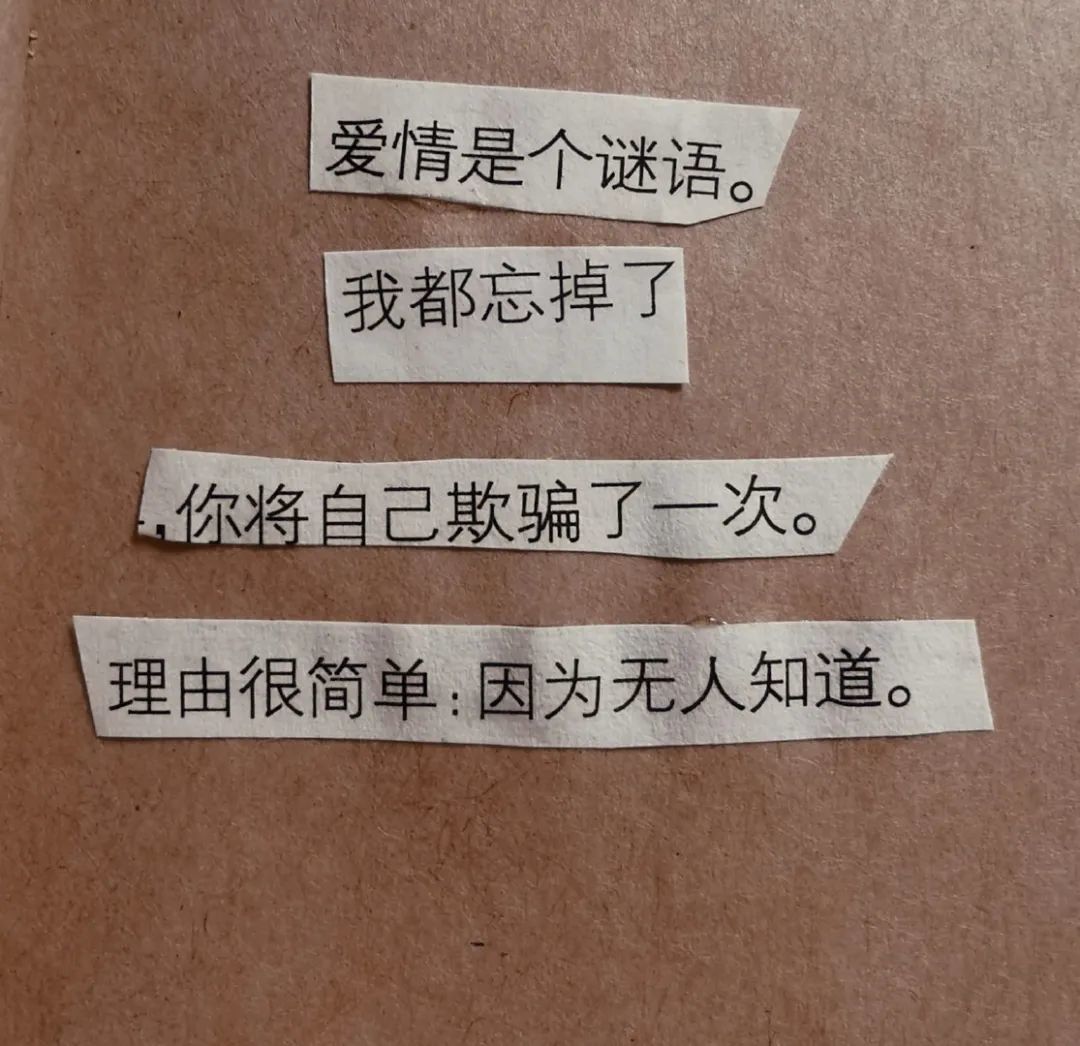 爱情是个谜语。
我都忘掉了
,你将自己欺骗了一次。
理由很简单:因为无人知道。